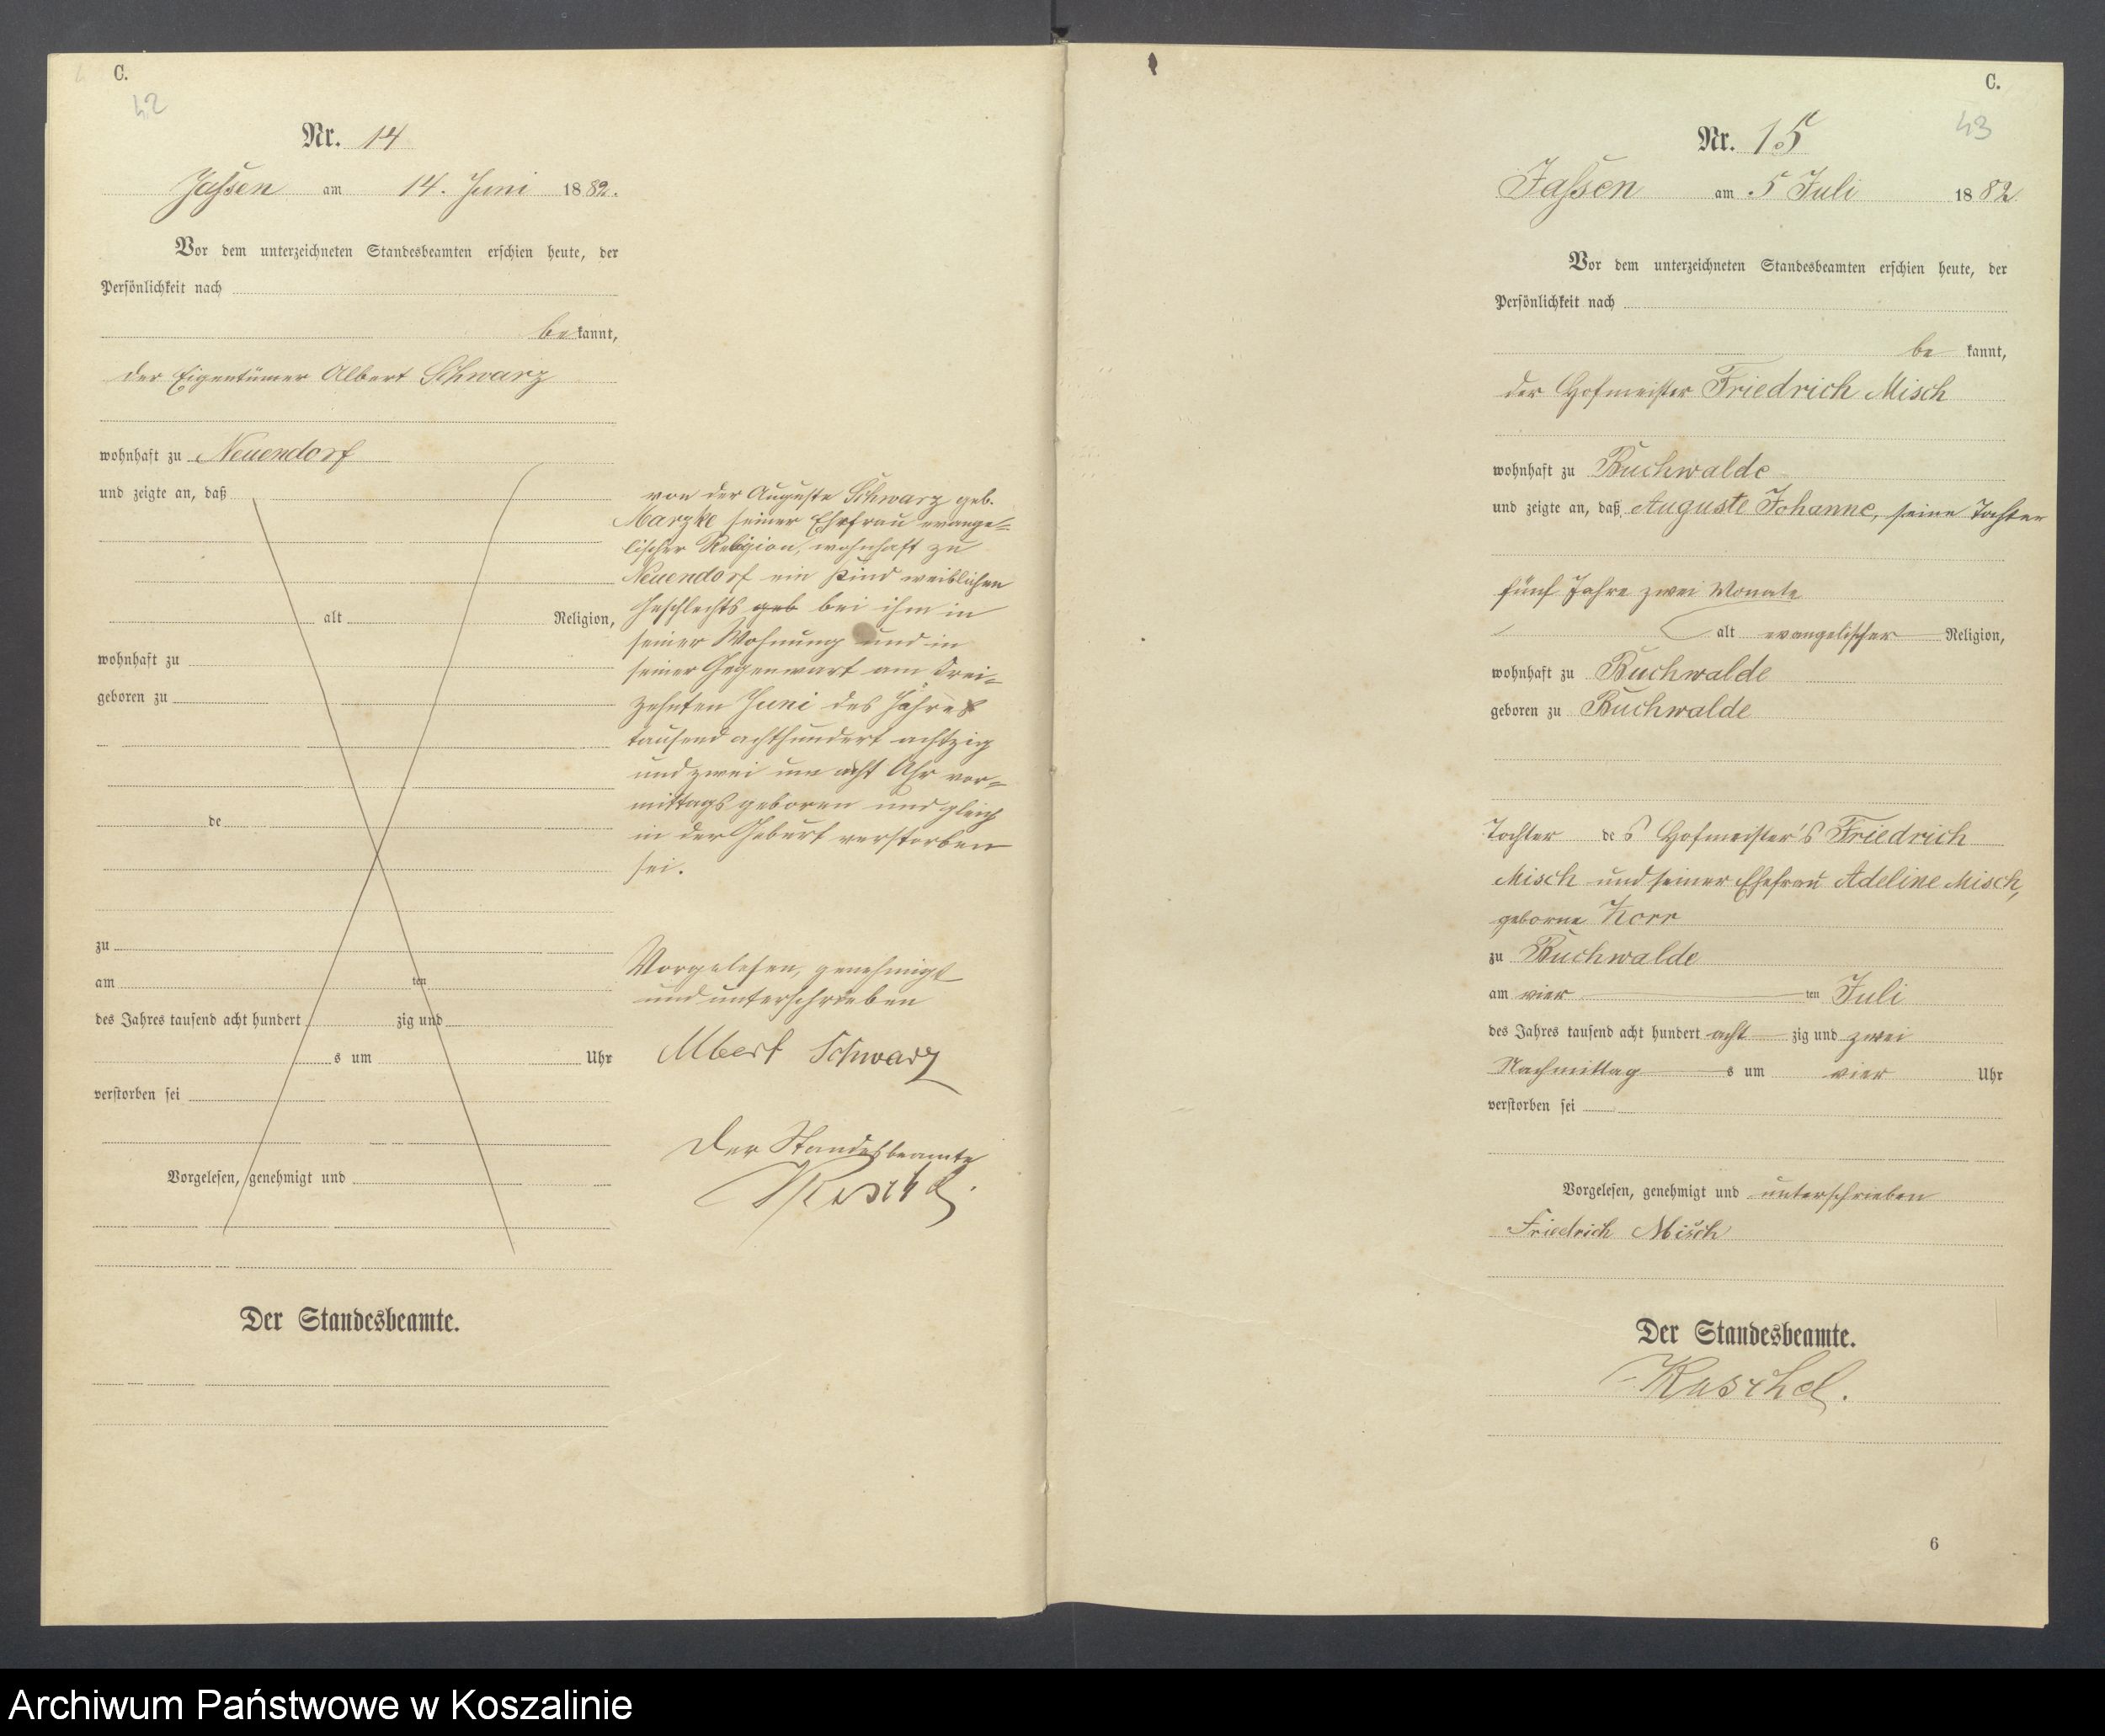 C.
42
Nr. 14
Jassen am 14. Juni 1882.
Vor dem unterzeichneten Standesbeamten erschien heute, der
Persönlichkeit nach
bekannt,
der Eigentümer Albert Schwarz
wohnhaft zu Neuendorf
und zeigte an, daß
alt Religion,
wohnhaft zu
geboren zu
de
zu
am ten
des Jahres tausend acht hundert zig und
s um Uhr
verstorben sei
Vorgelesen, genehmigt und
Der Standesbeamte.
von der Auguste Schwarz geb.
Marzke seiner Ehefrau evange-
lischer Religion, wohnhaft zu
Neuendorf ein Kind weiblichen
Geschlechts geb bei ihm in
seiner Wohnung und in
seiner Gegenwart am drei-
zehnten Juni des Jahres
tausend achthundert achtzig
und zwei um acht Uhr vor-
mittags geboren und gleich
in der Geburt verstorben
sei.
Vorgelesen, genehmigt
und unterschrieben
Albert Schwarz
Der Standesbeamte
Kuschel.
C.
43
Nr. 15
Jassen am 5 Juli 1882
Vor dem unterzeichneten Standesbeamten erschien heute, der
Persönlichkeit nach
bekannt,
der Hofmeister Friedrich Misch
wohnhaft zu Buchwalde
und zeigte an, daß Auguste Johanne, seine Tochter
fünf Jahre zwei Monate
alt evangelischer Religion,
wohnhaft zu Buchwalde
geboren zu Buchwalde
Tochter des Hofmeister's Friedrich
Misch und seiner Ehefrau Adeline Misch,
geborne Korr
zu Buchwalde
am vier ten Juli
des Jahres tausend acht hundert acht zig und zwei
Nachmittag s um vier Uhr
verstorben sei
Vorgelesen, genehmigt und unterschrieben
Friedrich Misch
Der Standesbeamte.
Kuschel.
6
Archiwum Państwowe w Koszalinie